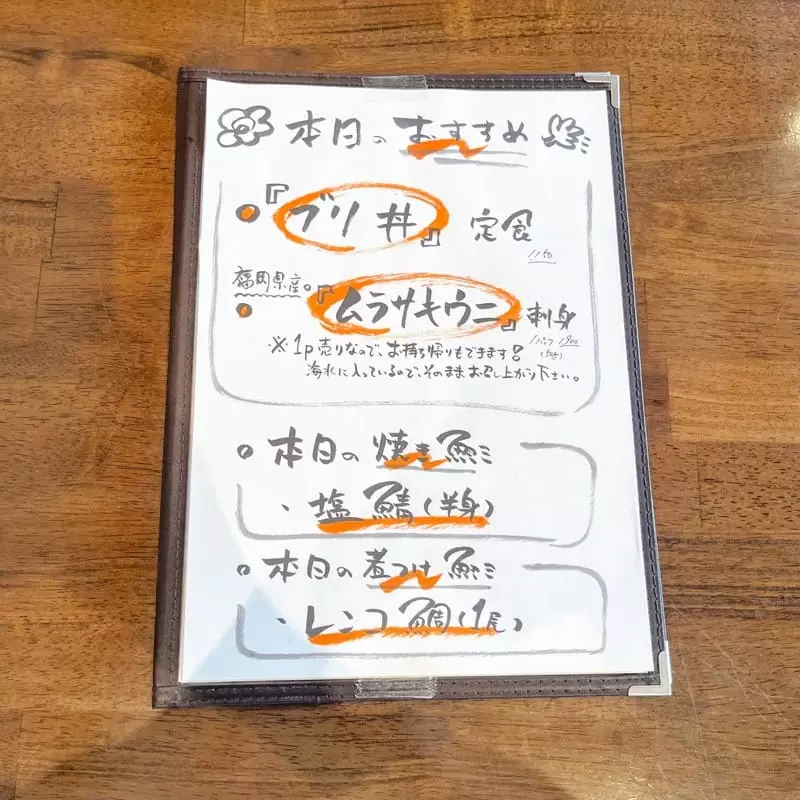 本日のおすすめ
『ブリ丼』定食
1150
福岡県産。
『ムラサキウニ』刺身
1パック1900
※1p売りなので、お持ち帰りもできます!
海水に入っているので、そのままお召し上がり下さい。
本日の焼き魚
・塩鯖(半身)
本日の煮つけ魚
・レンコ鯛(1尾)